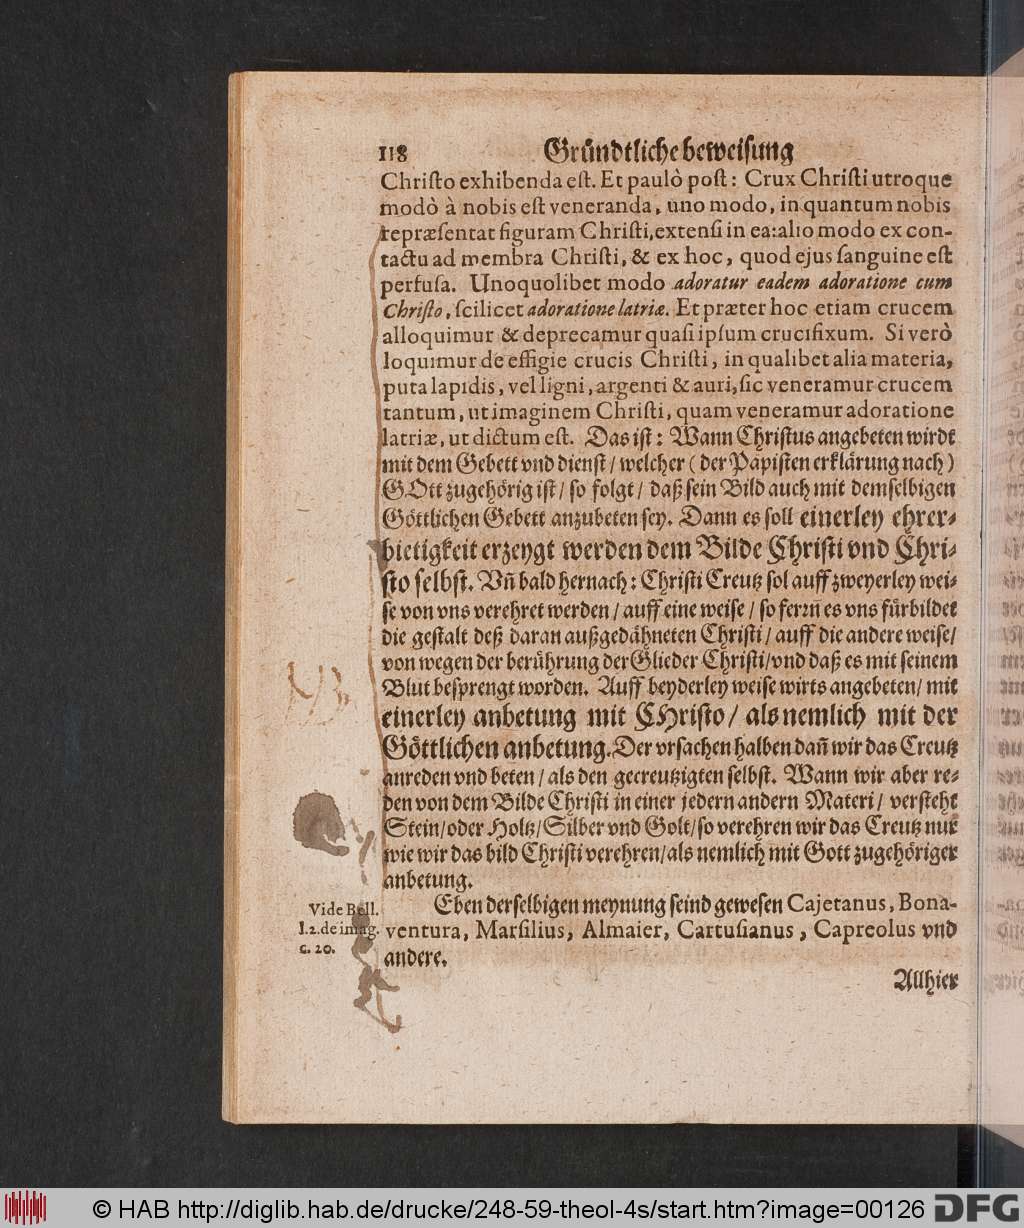 118 Gründtliche beweisung
Christo exhibenda est. Et paulò post: Crux Christi utroque
modò à nobis est veneranda, uno modo, in quantum nobis
repræsentat figuram Christi, extensi in ea: alio modo ex con-
tactu ad membra Christi, & ex hoc, quod ejus sanguine est
perfusa. Unoquolibet modo adoratur eadem adoratione cum
Christo, scilicet adoratione latriæ. Et præter hoc etiam crucem
alloquimur & deprecamur quasi ipsum crucifixum. Si verò
loquimur de effigie crucis Christi, in qualibet alia materia,
puta lapidis, vel ligni, argenti & auri, sic veneramur crucem
tantum, ut imaginem Christi, quam veneramur adoratione
latriæ, ut dictum est. Das ist: Wann Christus angebeten wirdt
mit dem Gebett vnd dienst / welcher (der Päpisten erklärung nach)
GOtt zugehörig ist / so folgt / daß sein Bild auch mit demselbigen
Göttlichen Gebett anzubeten sey. Dann es soll einerley ehrer-
bietigkeit erzeygt werden dem Bilde Christi vnd Chri-
sto selbst. Vñ bald hernach: Christi Creutz sol auff zweyerley wei-
se von vns verehret werden / auff eine weise / so ferrn̄ es vns fürbildet
die gestalt deß daran außgedähneten Christi / auff die andere weise /
von wegen der berührung der Glieder Christi / vnd daß es mit seinem
Blut besprengt worden. Auff beyderley weise wirts angebeten / mit
einerley anbetung mit CHristo / als nemlich mit der
Göttlichen anbetung. Der vrsachen halben dañ wir das Creutz
anreden vnd beten / als den gecreutzigten selbst. Wann wir aber re-
den von dem Bilde Christi in einer jedern andern Materi / versteht
Stein / oder Holtz / Silber vnd Golt / so verehren wir das Creutz nur
wie wir das bild Christi verehren / als nemlich mit Gott zugehöriger
anbetung.
Eben derselbigen meynung seind gewesen Cajetanus, Bona-
ventura, Marsilius, Almaier, Cartusianus, Capreolus vnd
andere.
Vide Bell.
l. 2. de imag.
c. 20.
Allhier
© HAB http://diglib.hab.de/drucke/248-59-theol-4s/start.htm?image=00126 DFG